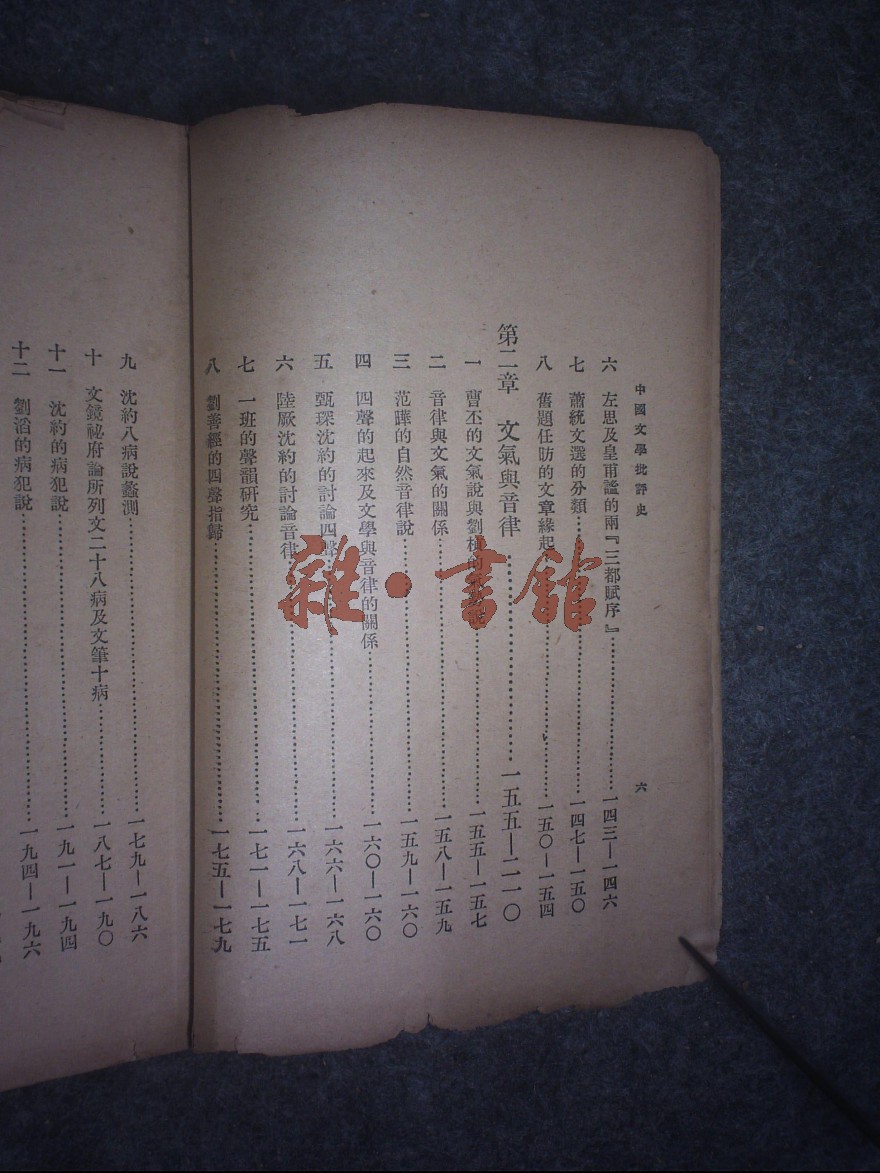 中國文學批評史
六
六 左思及皇甫謐的兩『三都賦序』……一四三—一四六
七 蕭統文選的分類……一四七—一五〇
八 舊題任昉的文章緣起……一五〇—一五四
第二章 文氣與音律……一五五—二一〇
一 曹丕的文氣說與劉楨的……一五五—一五七
二 音律與文氣的關係……一五八—一五九
三 范曄的自然音律說……一五九—一六〇
四 四聲的起來及文學與音律的關係……一六〇—一六〇
五 甄琛沈約的討論四聲……一六六—一六八
六 陸厥沈約的討論音律……一六八—一七一
七 一班的聲韻研究……一七一—一七五
八 劉善經的四聲指歸……一七五—一七九
九 沈約八病說蠡測……一七九—一八六
十 文鏡祕府論所列文二十八病及文筆十病……一八七—一九〇
十一 沈約的病犯說……一九一—一九四
十二 劉滔的病犯說……一九四—一九六
雜·書館